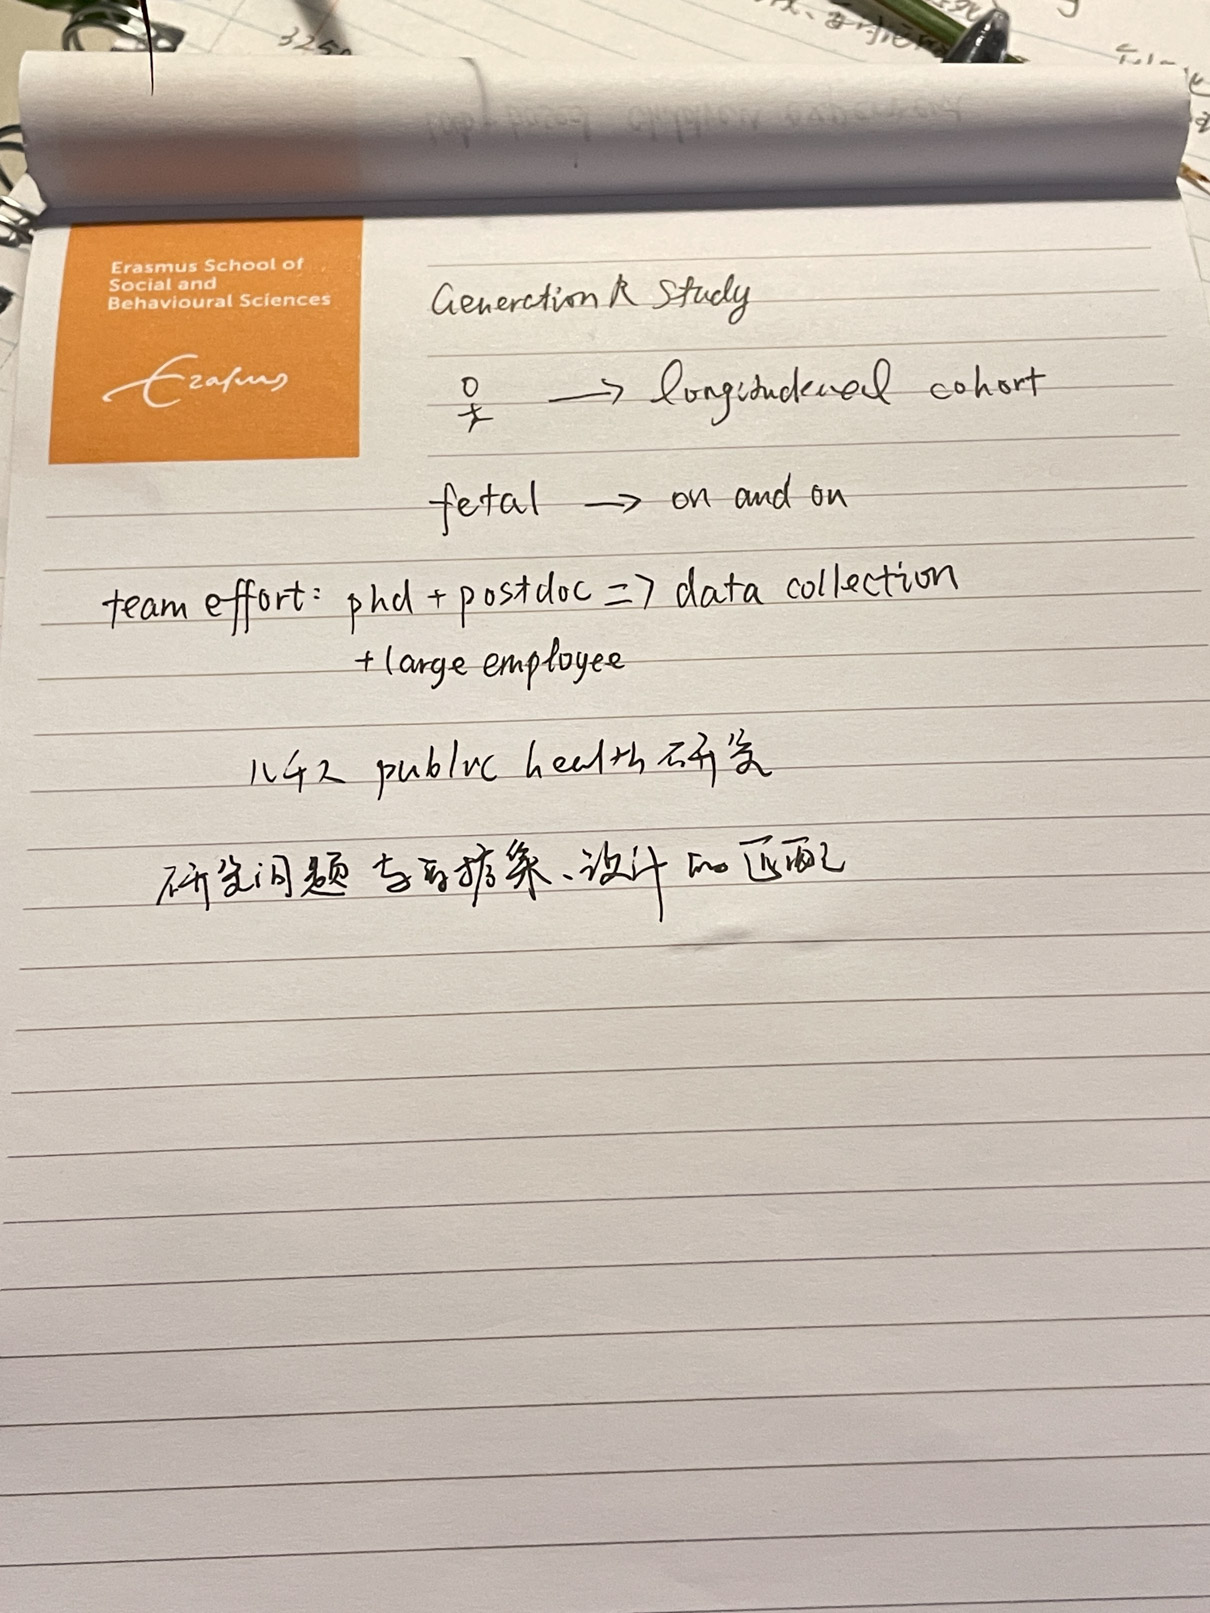 3250
Erasmus School of
Social and
Behavioural Sciences
Erasmus
Generction R Study
→ longitudenal cohort
fetal → on and on
team effort: phd + postdoc => data collection
+ large employee
public health 研究
研究问题与数据集、设计的匹配